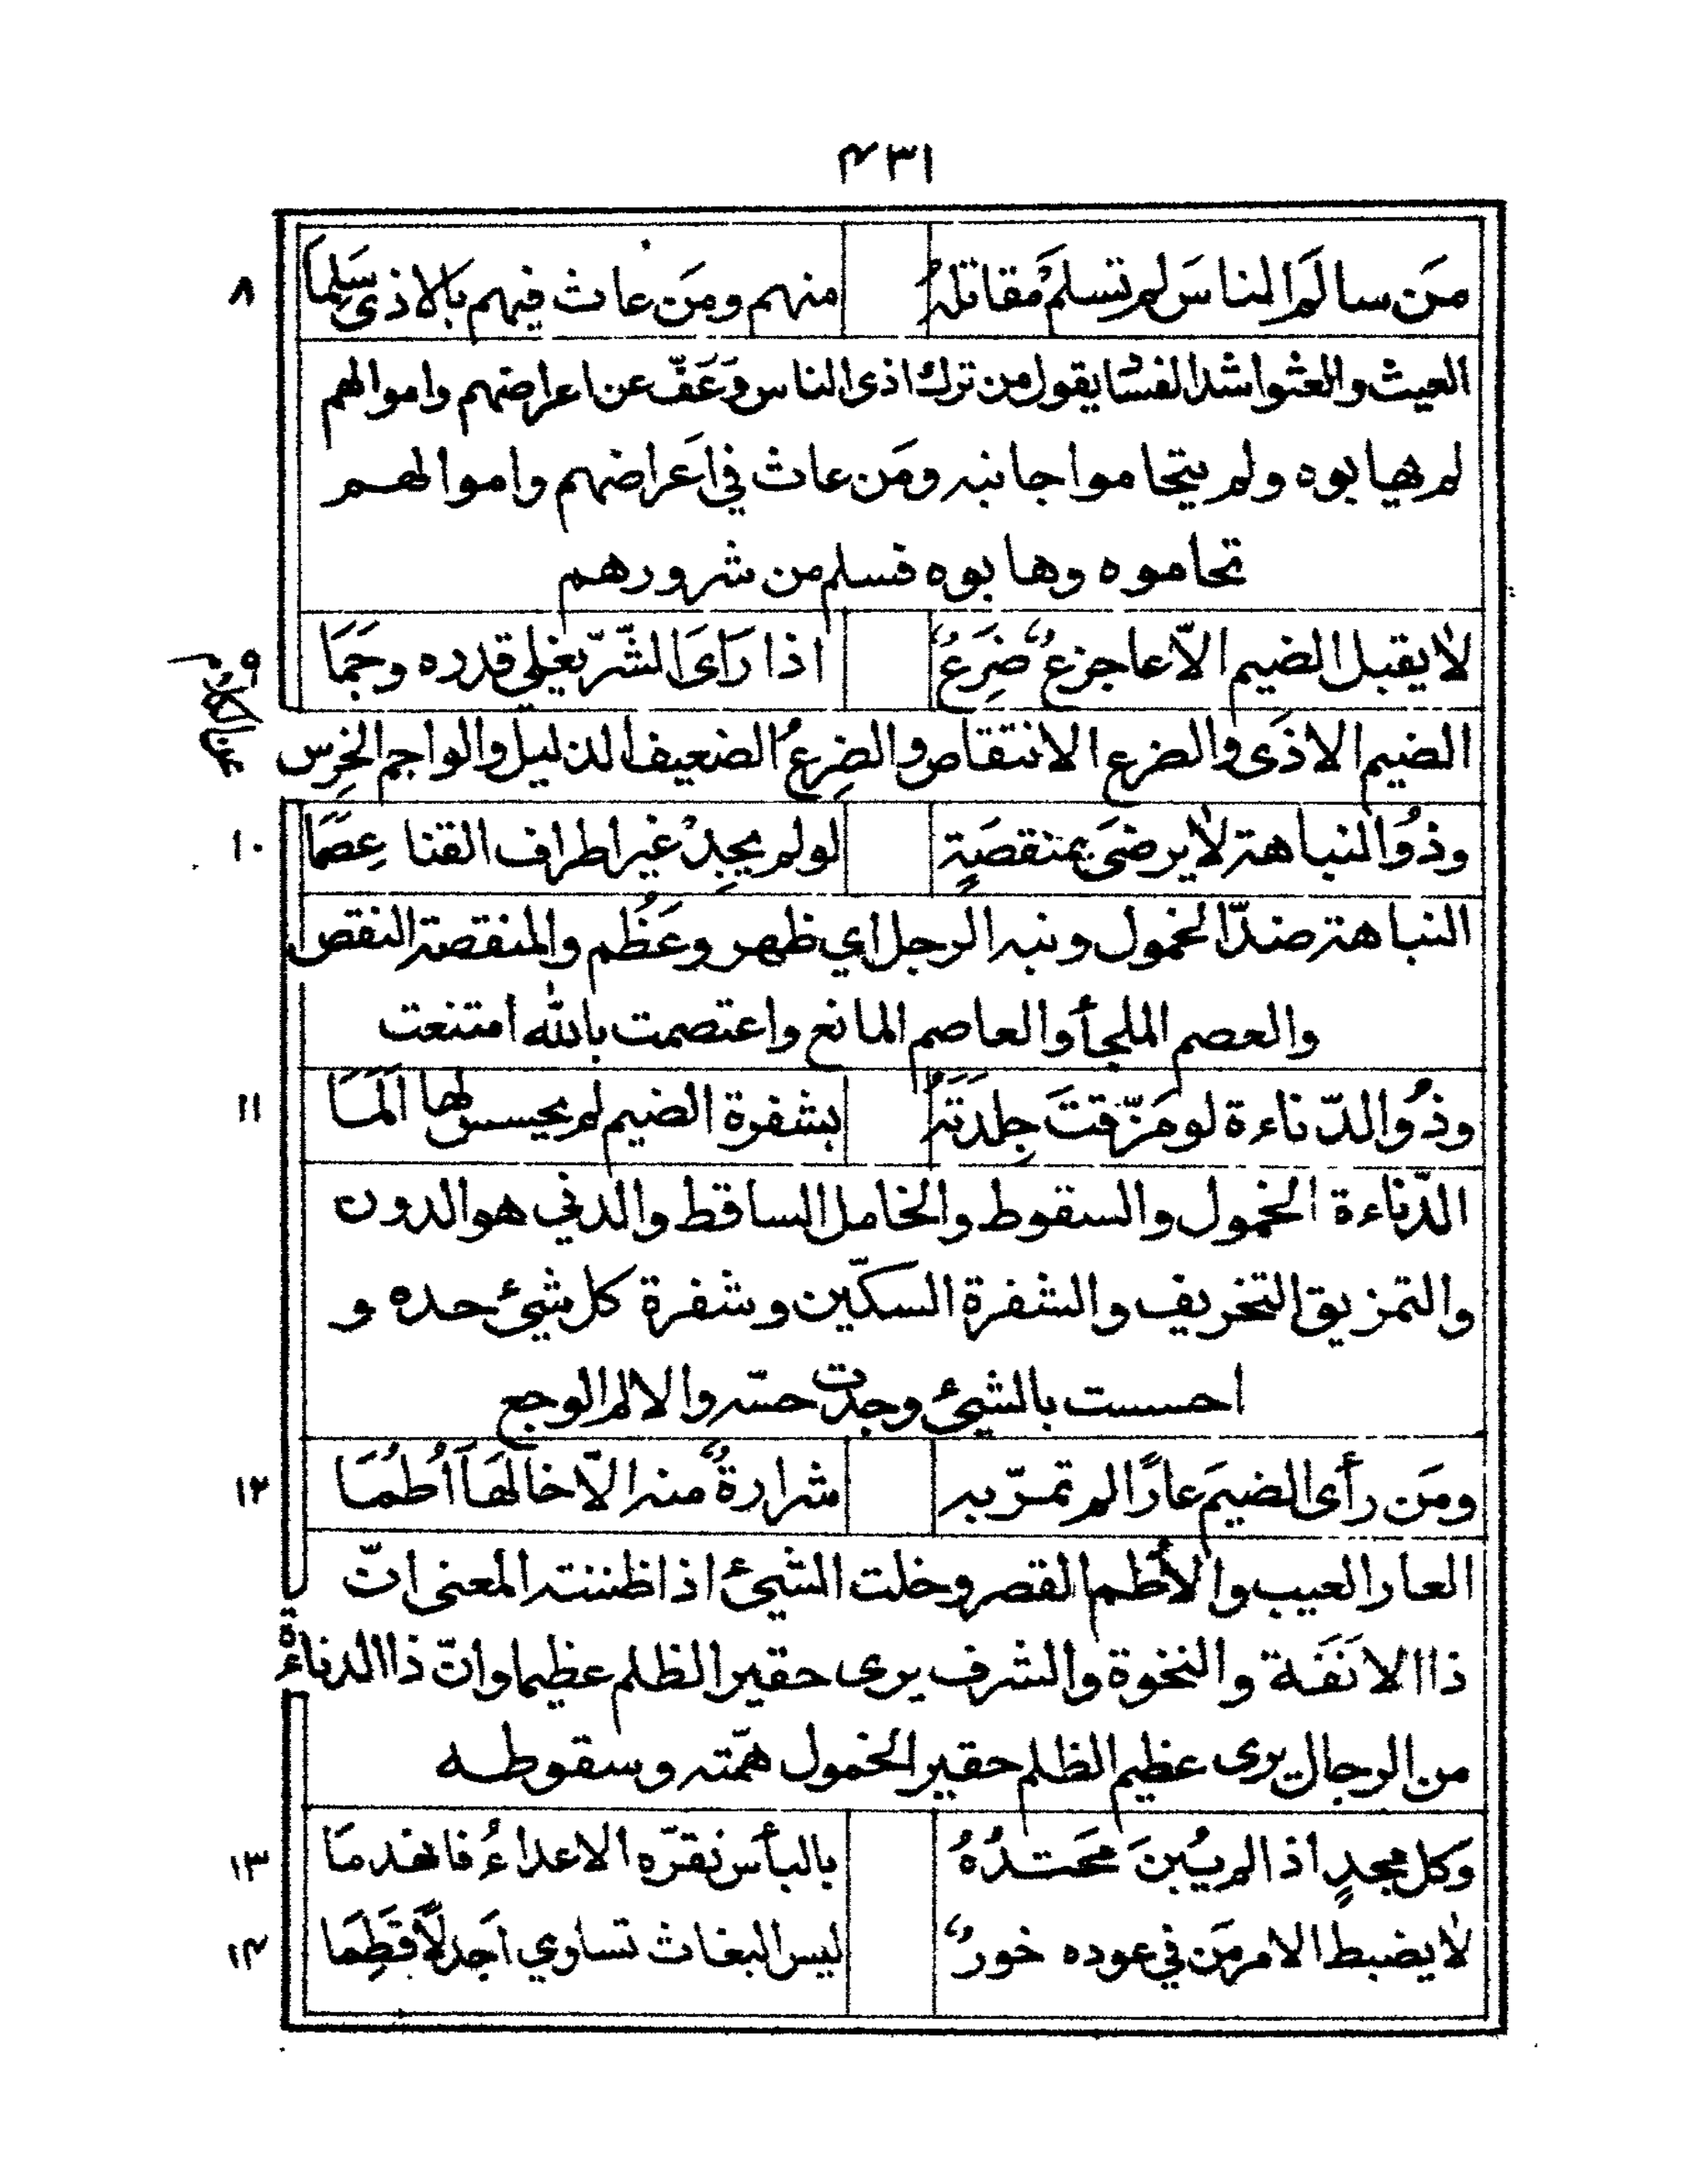 ٤٣١
مَن سالَمَ الناسَ لم تسلمْ مَقاتلهُ منهم ومَن عاث فيهم بالاذى سَلِما ٨
العيث والعثو اشد الفسا يقول من ترك اذى الناس وَعَفّ عن اعراضهم واموالهم
لم يهابوه ولم يتحاموا جانبه ومَن عاث في اَعراضهم واموالهم
تحاموه وهابوه فسلم من شرورهم
لا يقبل الضيم الاّ عاجزعٌ ضَرِعٌ اذا رَاَىَ الشّرّ يغلي قدره وجَمَا ٩
الضيم الاذَى والضرع الانتقاص والضرِعُ الضعيف الذليل والواجم الخرِس
عن الكلام
وذُو النباهة لا يرضىَ بمنقصَةٍ لو لم يجِدْ غير اطراف القنا عِصَمَا ١٠
النباهة ضدّ الخمول ونبه الرجل اي ظهر وعَظُم والمنقصة النقص
والعصم الملجأ والعاصم المانع واعتصمت بالله امتنعت
وذُو الدّناءة لو مَزّقتَ جِلدَتَهُ بشفرة الضيم لم يحسس لها اَلَمَا ١١
الدّناءة الخمول والسقوط والخامل الساقط والدني هو الدون
والتمزيق التخريف والشفرة السكّين وشفرة كل شيئ حده و
احسست بالشيئ وجدت حسّه والالم الوجع
ومَن رأى الضيَم عارًا لم تمرّ به شرارةٌ منه الاّ خالَهَا اُطُمَا ١٢
العار العيب والأطم القصر وخلت الشيئ اذا ظننته المعنى انّ
ذا الانَفَة والنخوة والشرف يرى حقير الظلم عظيما وانّ ذا الدناءة
من الرجال يرى عظيم الظلم حقير الخمول همّته وسقوطه
وكل مجدٍ اذا لم يُبنَ مَحتدُهُ بالبأس نقرّه الاعداءُ فانهدمَا ١٣
لا يضبط الامر مَن في عوده خورٌ ليس البغاث تساوي اَجدلاً قَطِمَا ١٤